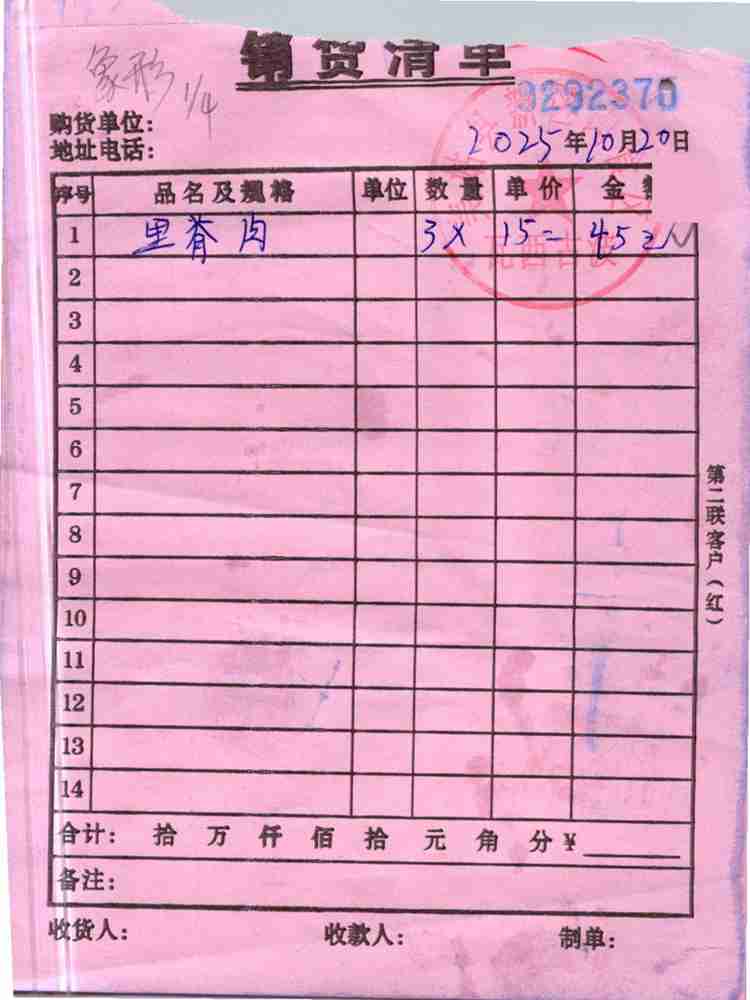 销货清单
象形 1/4
9292370
购货单位:
地址电话:
2025年10月20日
序号 品名及规格 单位 数量 单价 金
1 里脊肉 3× 15= 45
2
3
4
5
6
7
8
9
10
11
12
13
14
合计: 拾 万 仟 佰 拾 元 角 分 ¥
备注:
收货人: 收款人: 制单:
第二联客户(红)